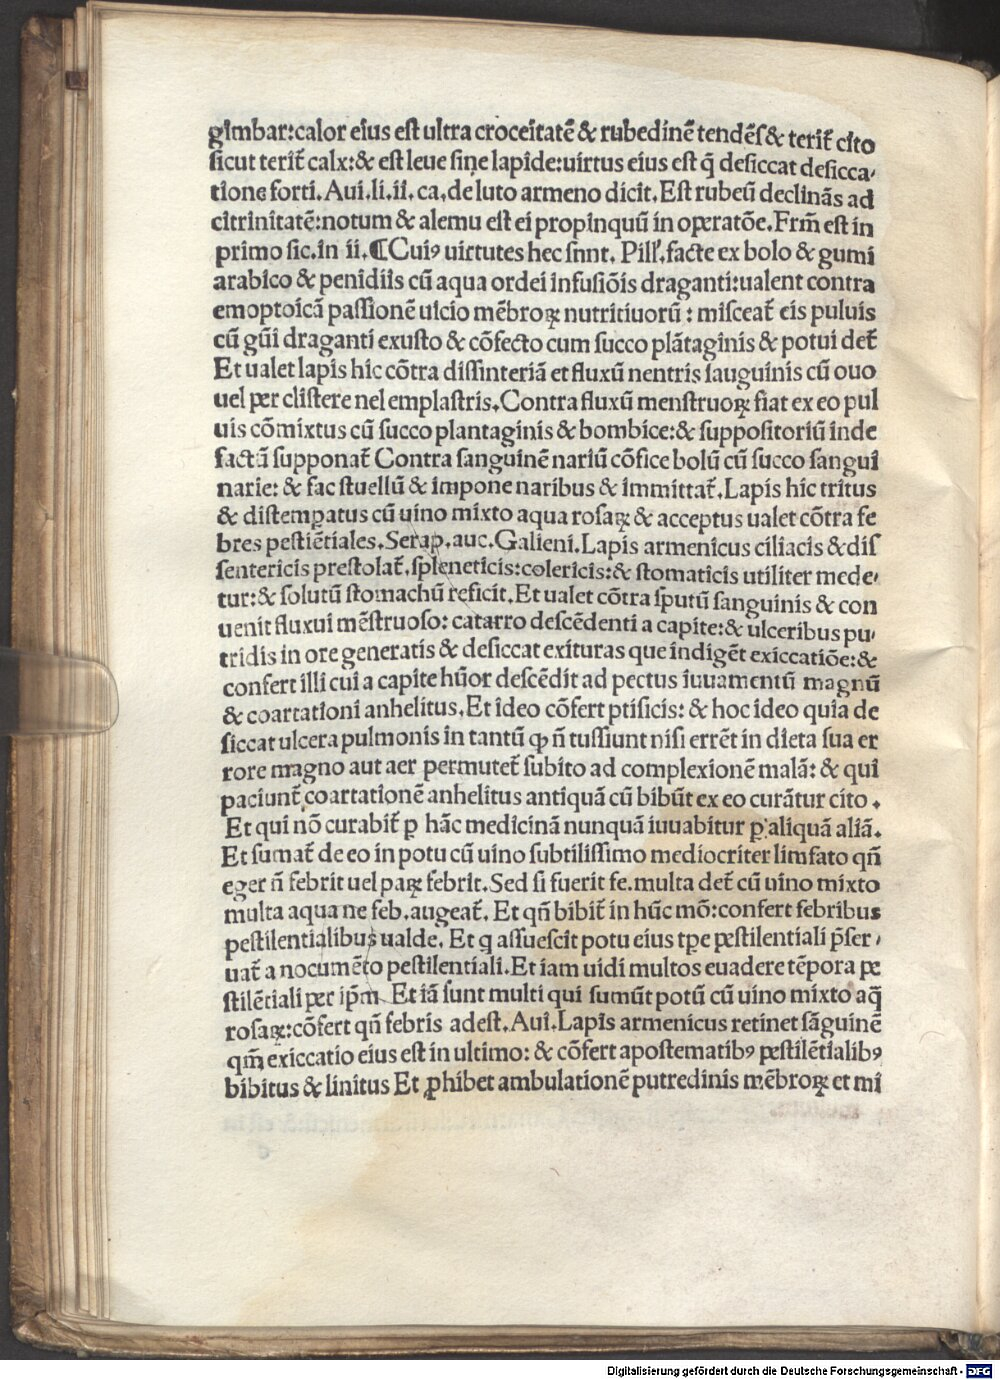 gimbar:calor eius est ultra croceitatē & rubedinē tendēs & terit̄ cito
sicut terit̄ calx:& est leue sine lapide:uirtus eius est q̄ desiccat desicca,
tione forti. Aui.li.ii. ca, de luto armeno dicit. Est rubeū declinās ad
citrinitatē:notum & alemu est ei propinquū in operatōe. Frm̄ est in
primo sic.in ii. ¶ Cuiꝰ uirtutes hec snnt. Pill'. facte ex bolo & gumi
arabico & penidiis cū aqua ordei infusiōis draganti:ualent contra
emoptoicā passionē uicio mēbroꝝ nutritiuorū : misceat̄ eis puluis
cū gūi draganti exusto & cōfecto cum succo plātaginis & potui det̄
Et ualet lapis hic cōtra dissinteriā et fluxū nentris sauguinis cū ouo
uel per clistere nel emplastris. Contra fluxū menstruoꝝ fiat ex eo pul
uis cōmixtus cū succo plantaginis & bombice:& suppositoriū inde
factā supponat̄ Contra sanguinē nariū cōfice bolū cū succo sangui
narie: & fac stuellū & impone naribus & immittat̄. Lapis hic tritus
& distemꝑatus cū uino mixto aqua rosaꝝ & acceptus ualet cōtra fe
bres pestiētiales. Seraꝑ. auc. Galieni. Lapis armenicus ciliacis & dis
sentericis prestolat̄. spleneticis:colericis:& stomaticis utiliter mede,
tur:& solutū stomachū reficit. Et ualet cōtra sputū sanguinis & con
uenit fluxui mēstruoso: catarro descēdenti a capite:& ulceribus pu,
tridis in ore generatis & desiccat exituras que indigēt exiccatiōe:&
confert illi cui a capite hūor descēdit ad pectus iuuamentū magnū
& coartationi anhelitus. Et ideo cōfert ptisicis: & hoc ideo quia de
siccat ulcera pulmonis in tantū ꝙ n̄ tussiunt nisi errēt in dieta sua er
rore magno aut aer permutet̄ subito ad complexionē malā: & qui
paciunt̄ coartationē anhelitus antiquā cū bibūt ex eo curātur cito .
Et qui nō curabit̄ ꝑ hāc medicinā nunquā iuuabitur ꝑ aliquā aliā.
Et sumat̄ de eo in potu cū uino subtilissimo mediocriter limfato qn̄
eger n̄ febrit uel paꝝ febrit. Sed si fuerit fe. multa det̄ cū uino mixto
multa aqua ne feb. augeat̄. Et qn̄ bibit̄ in hūc mō:confert febribus
pestilentialibus ualde. Et q assuescit potu eius tꝑe pestilentiali p̄ser,
uat̄ a nocumēto pestilentiali. Et iam uidi multos euadere tēpora pe
stilētiali per ip̄m Et iā sunt multi qui sumūt potū cū uino mixto aq̄
rosaꝝ:cōfert qn̄ febris adest. Aui. Lapis armenicus retinet sāguinē
qm̄ exiccatio eius est in ultimo: & cōfert apostematibꝰ pestilētialibꝰ
bibitus & linitus Et ꝓhibet ambulationē putredinis mēbroꝝ et mi
Digitalisierung gefördert durch die Deutsche Forschungsgemeinschaft - DFG